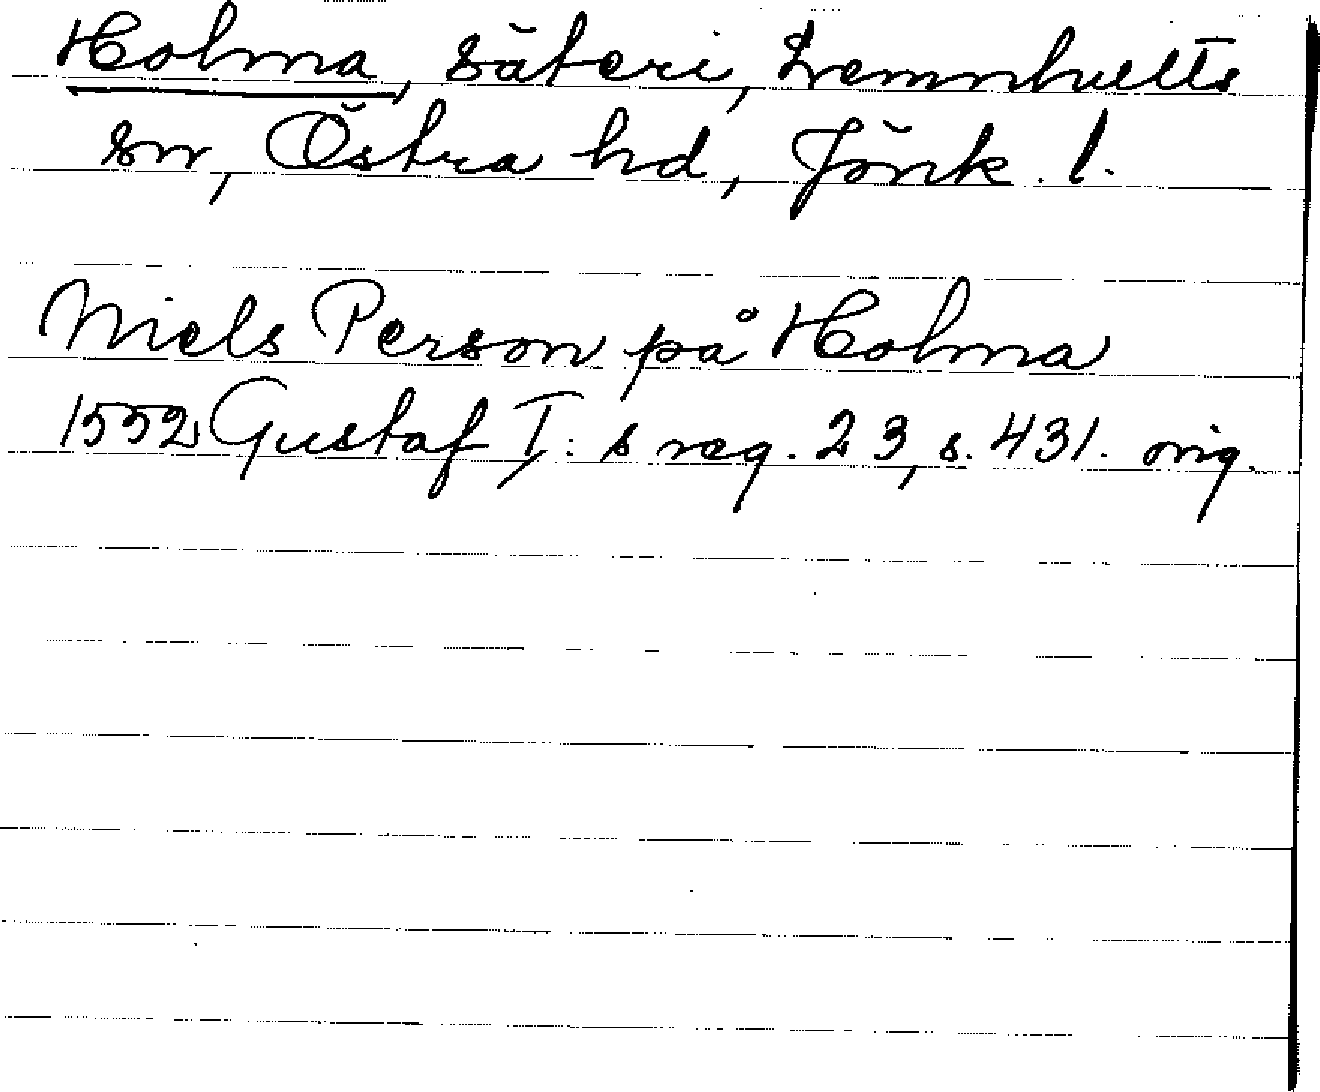 Holma, säteri, Lemnhults
sn, Östra hd, Jönk. l.
Niels Person på Holma
1552 Gustaf I:s reg. 23, s. 431. orig.